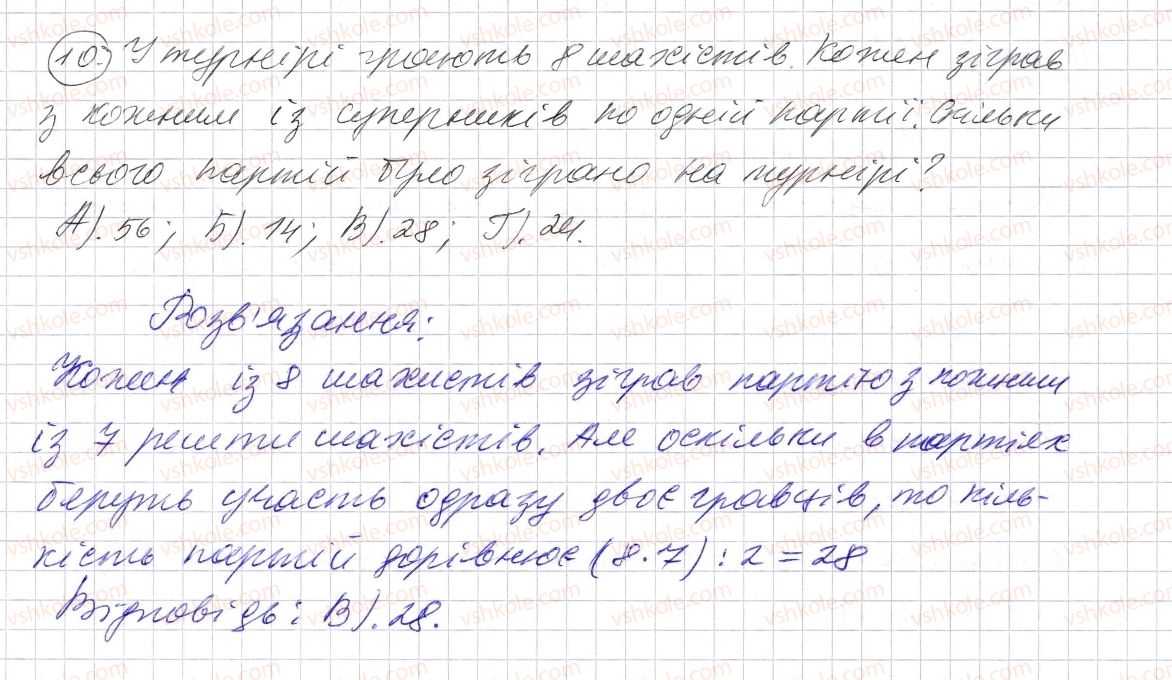 10. У турнірі грають 8 шахістів. Кожен зіграв
з кожним із суперників по одній партії. Скільки
всього партій було зіграно на турнірі?
А). 56; Б). 14; В). 28; Г). 24.
Розв'язання:
Кожен із 8 шахистів зіграв партію з кожним
із 7 решти шахістів. Але оскільки в партіях
беруть участь одразу двоє гравців, то кіль-
кість партій дорівнює (8·7) : 2 = 28
Відповідь: В). 28.